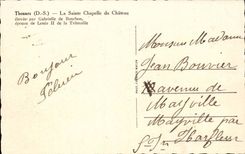 Thouars (D.-S.) — La Sainte Chapelle du Château
élevée par Gabrielle de Bourbon,
épouse de Louis II de la Trémoïlle
Bonjour
Monsieur Madame
Jean Bouvier
avenue de
Mayville
Mayville par
Harfleur